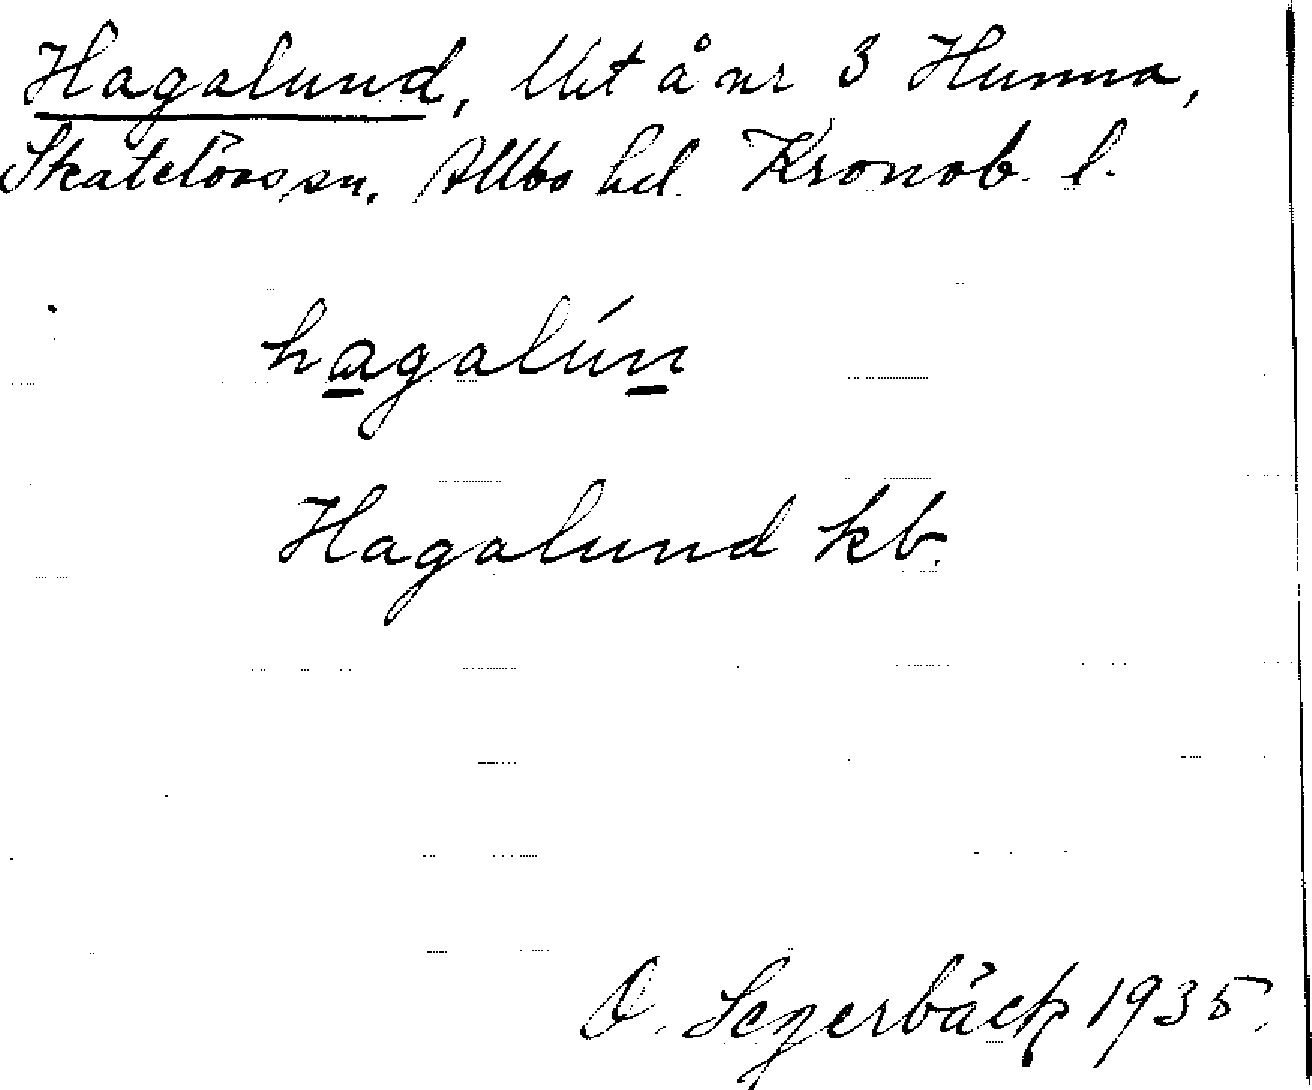 Hagalund, Utt å nr 3 Hunna,
Skatelövs sn. Allbo hd. Kronob. l.
hagalún
Hagalund kb.
O. Segerbäck 1935.